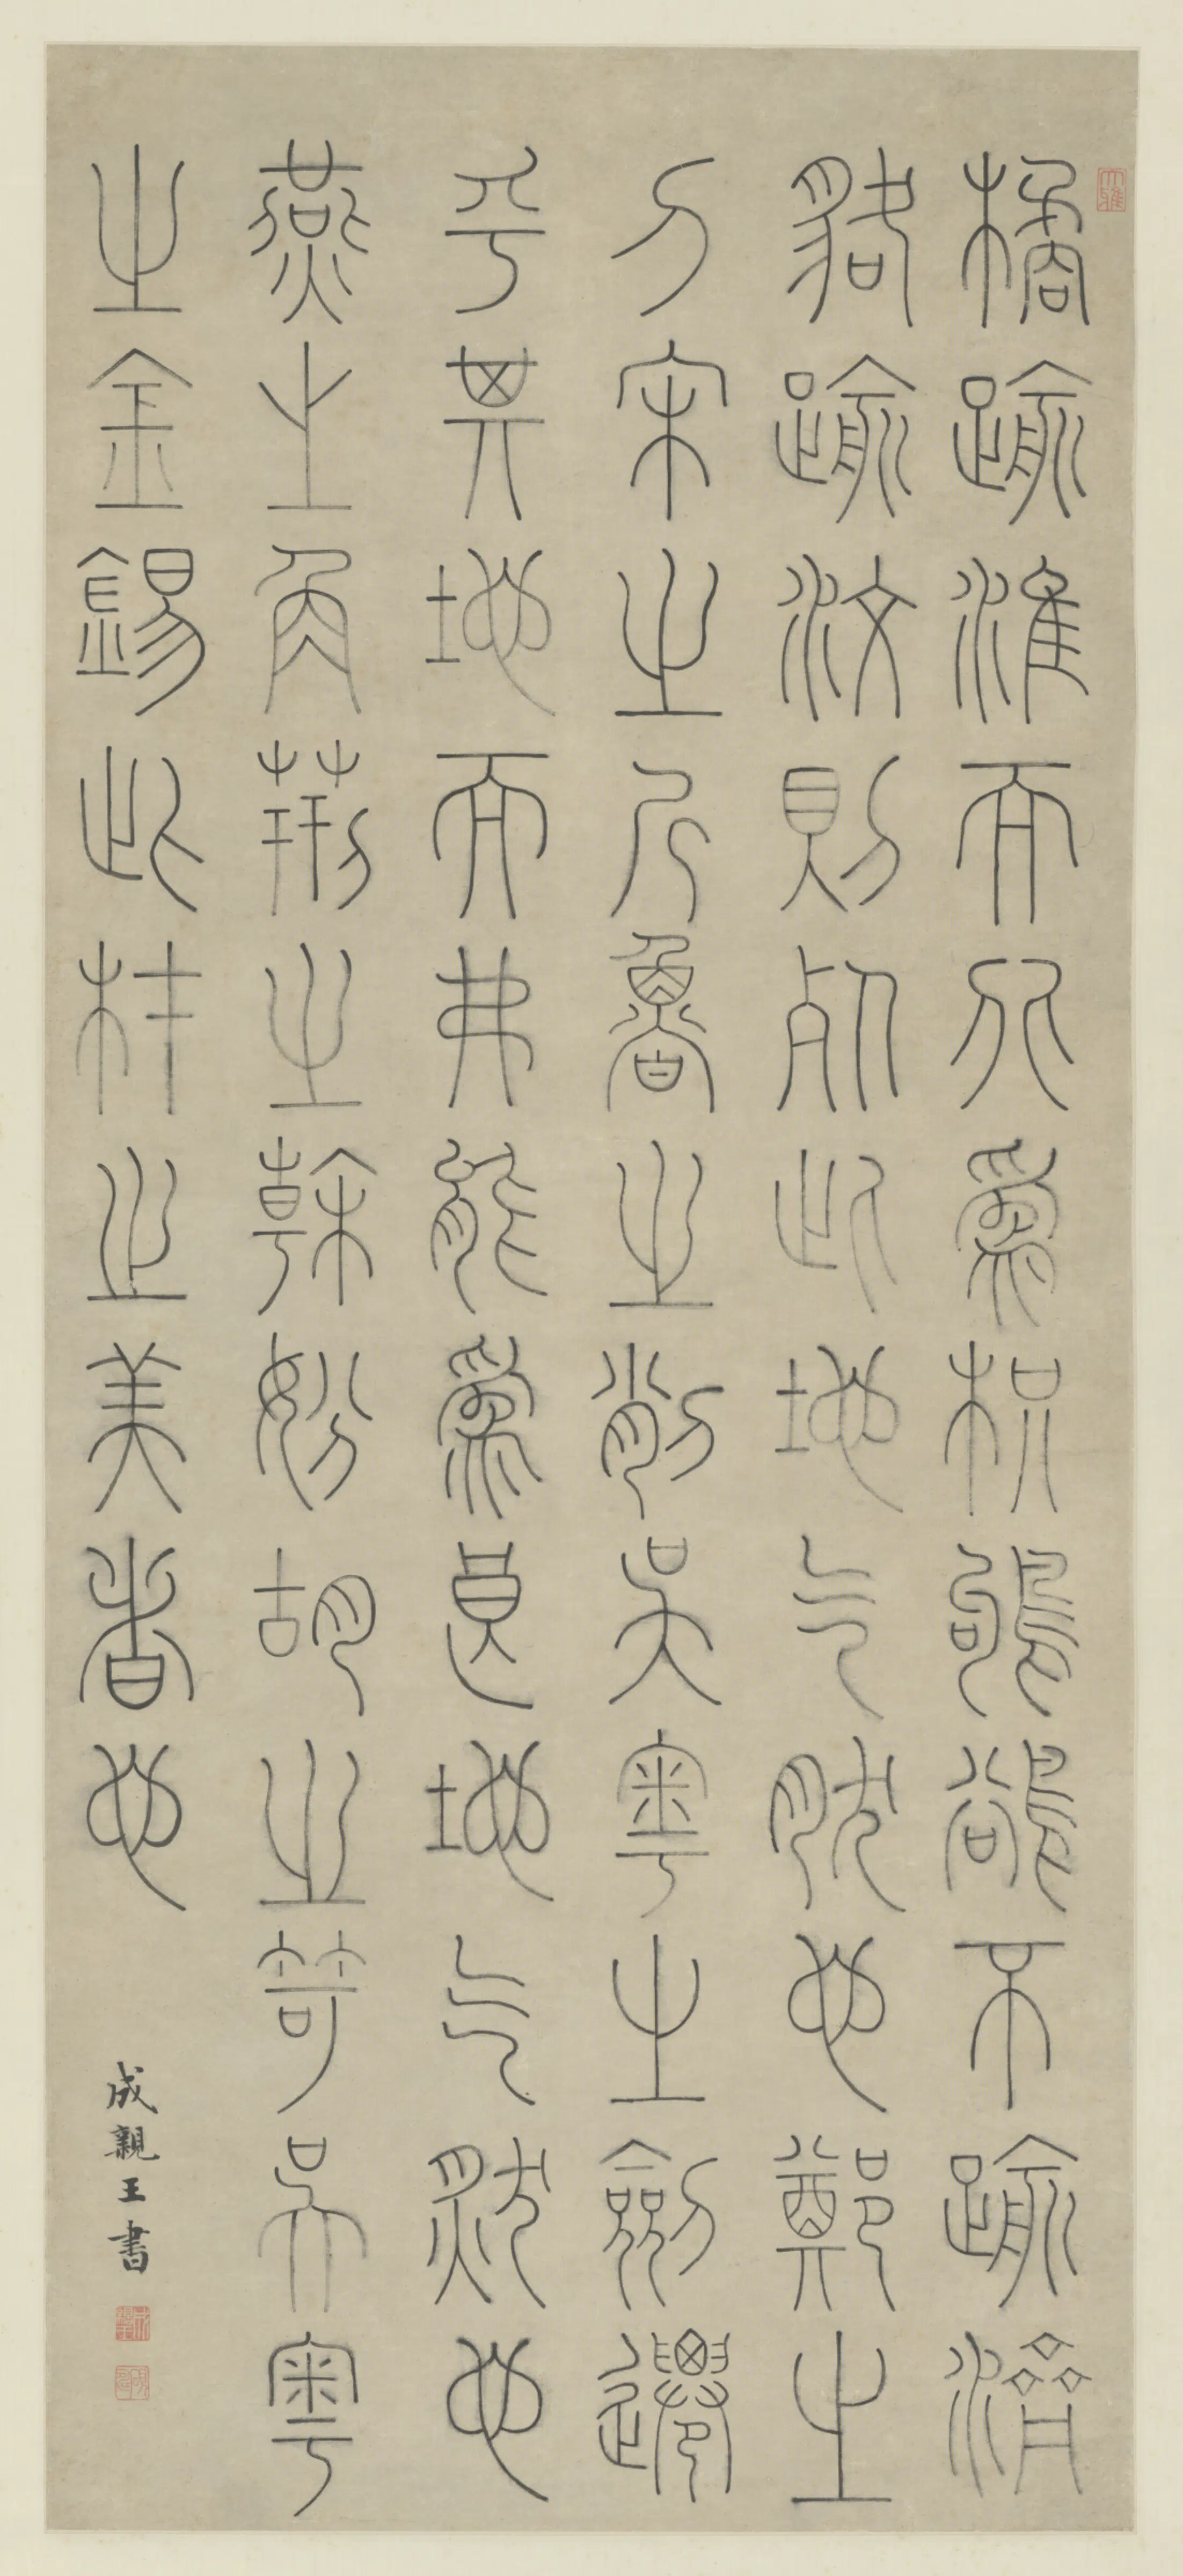 大雅
橘踰淮而北為枳鸜鵒不踰濟
貉踰汶則死此地气然也鄭之
刀宋之斤魯之削吳粵之劍遷
乎其地而弗能為良地气然也
燕之角荊之幹妢胡之笴吳粵
之金錫此材之美者也
成親王書